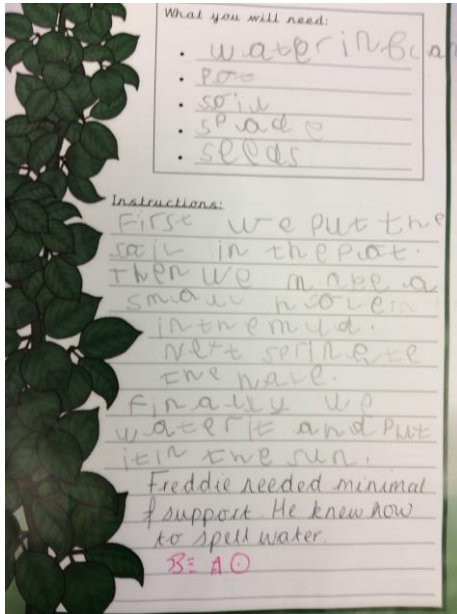 What you will need:
• waterinbcan
• pot
• soil
• spade
• seeds
Instructions:
First we put the
soil in thepot.
Then we make a
small hole in
in the mud.
Next sprincte
the hale.
Finally we
water it and put
it in the sun.
Freddie needed minimal
support. He knew how
to spell water.